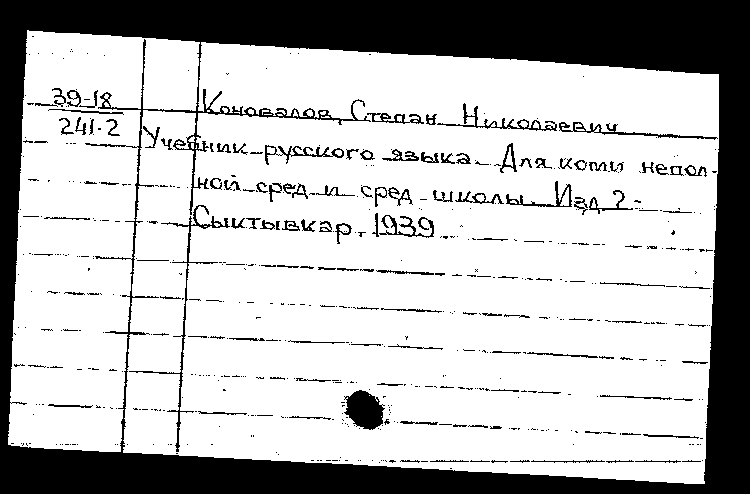 39-18
241-2
Коновалов, Степан Николаевич
Учебник русского языка. Для коми непол-
ной сред. и сред. школы. Изд. 2-
Сыктывкар, 1939